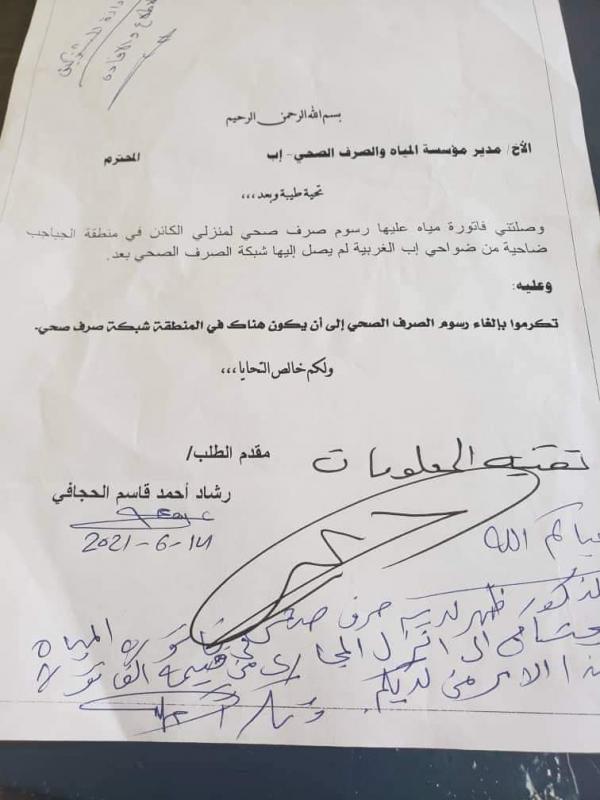 للاطلاع والافادة
بسم الله الرحمن الرحيم
الأخ/ مدير مؤسسة المياه والصرف الصحي- إب المحترم
تحية طيبة وبعد،،،
وصلتني فاتورة مياه عليها رسوم صرف صحي لمنزلي الكائن في منطقة الجباجب
ضاحية من ضواحي إب الغربية لم يصل إليها شبكة الصرف الصحي بعد.
وعليه:
تكرموا بإلغاء رسوم الصرف الصحي إلى أن يكون هناك في المنطقة شبكة صرف صحي.
ولكم خالص التحايا،،،
مقدم الطلب/
رشاد أحمد قاسم الحجافي
2021-6-14
تقنية المعلومات
حياكم الله
المذكور ظهر لديه صرف صحي في فاتورة المياه
المجاري من قيمة الفاتورة
هذا الامر من لديكم.